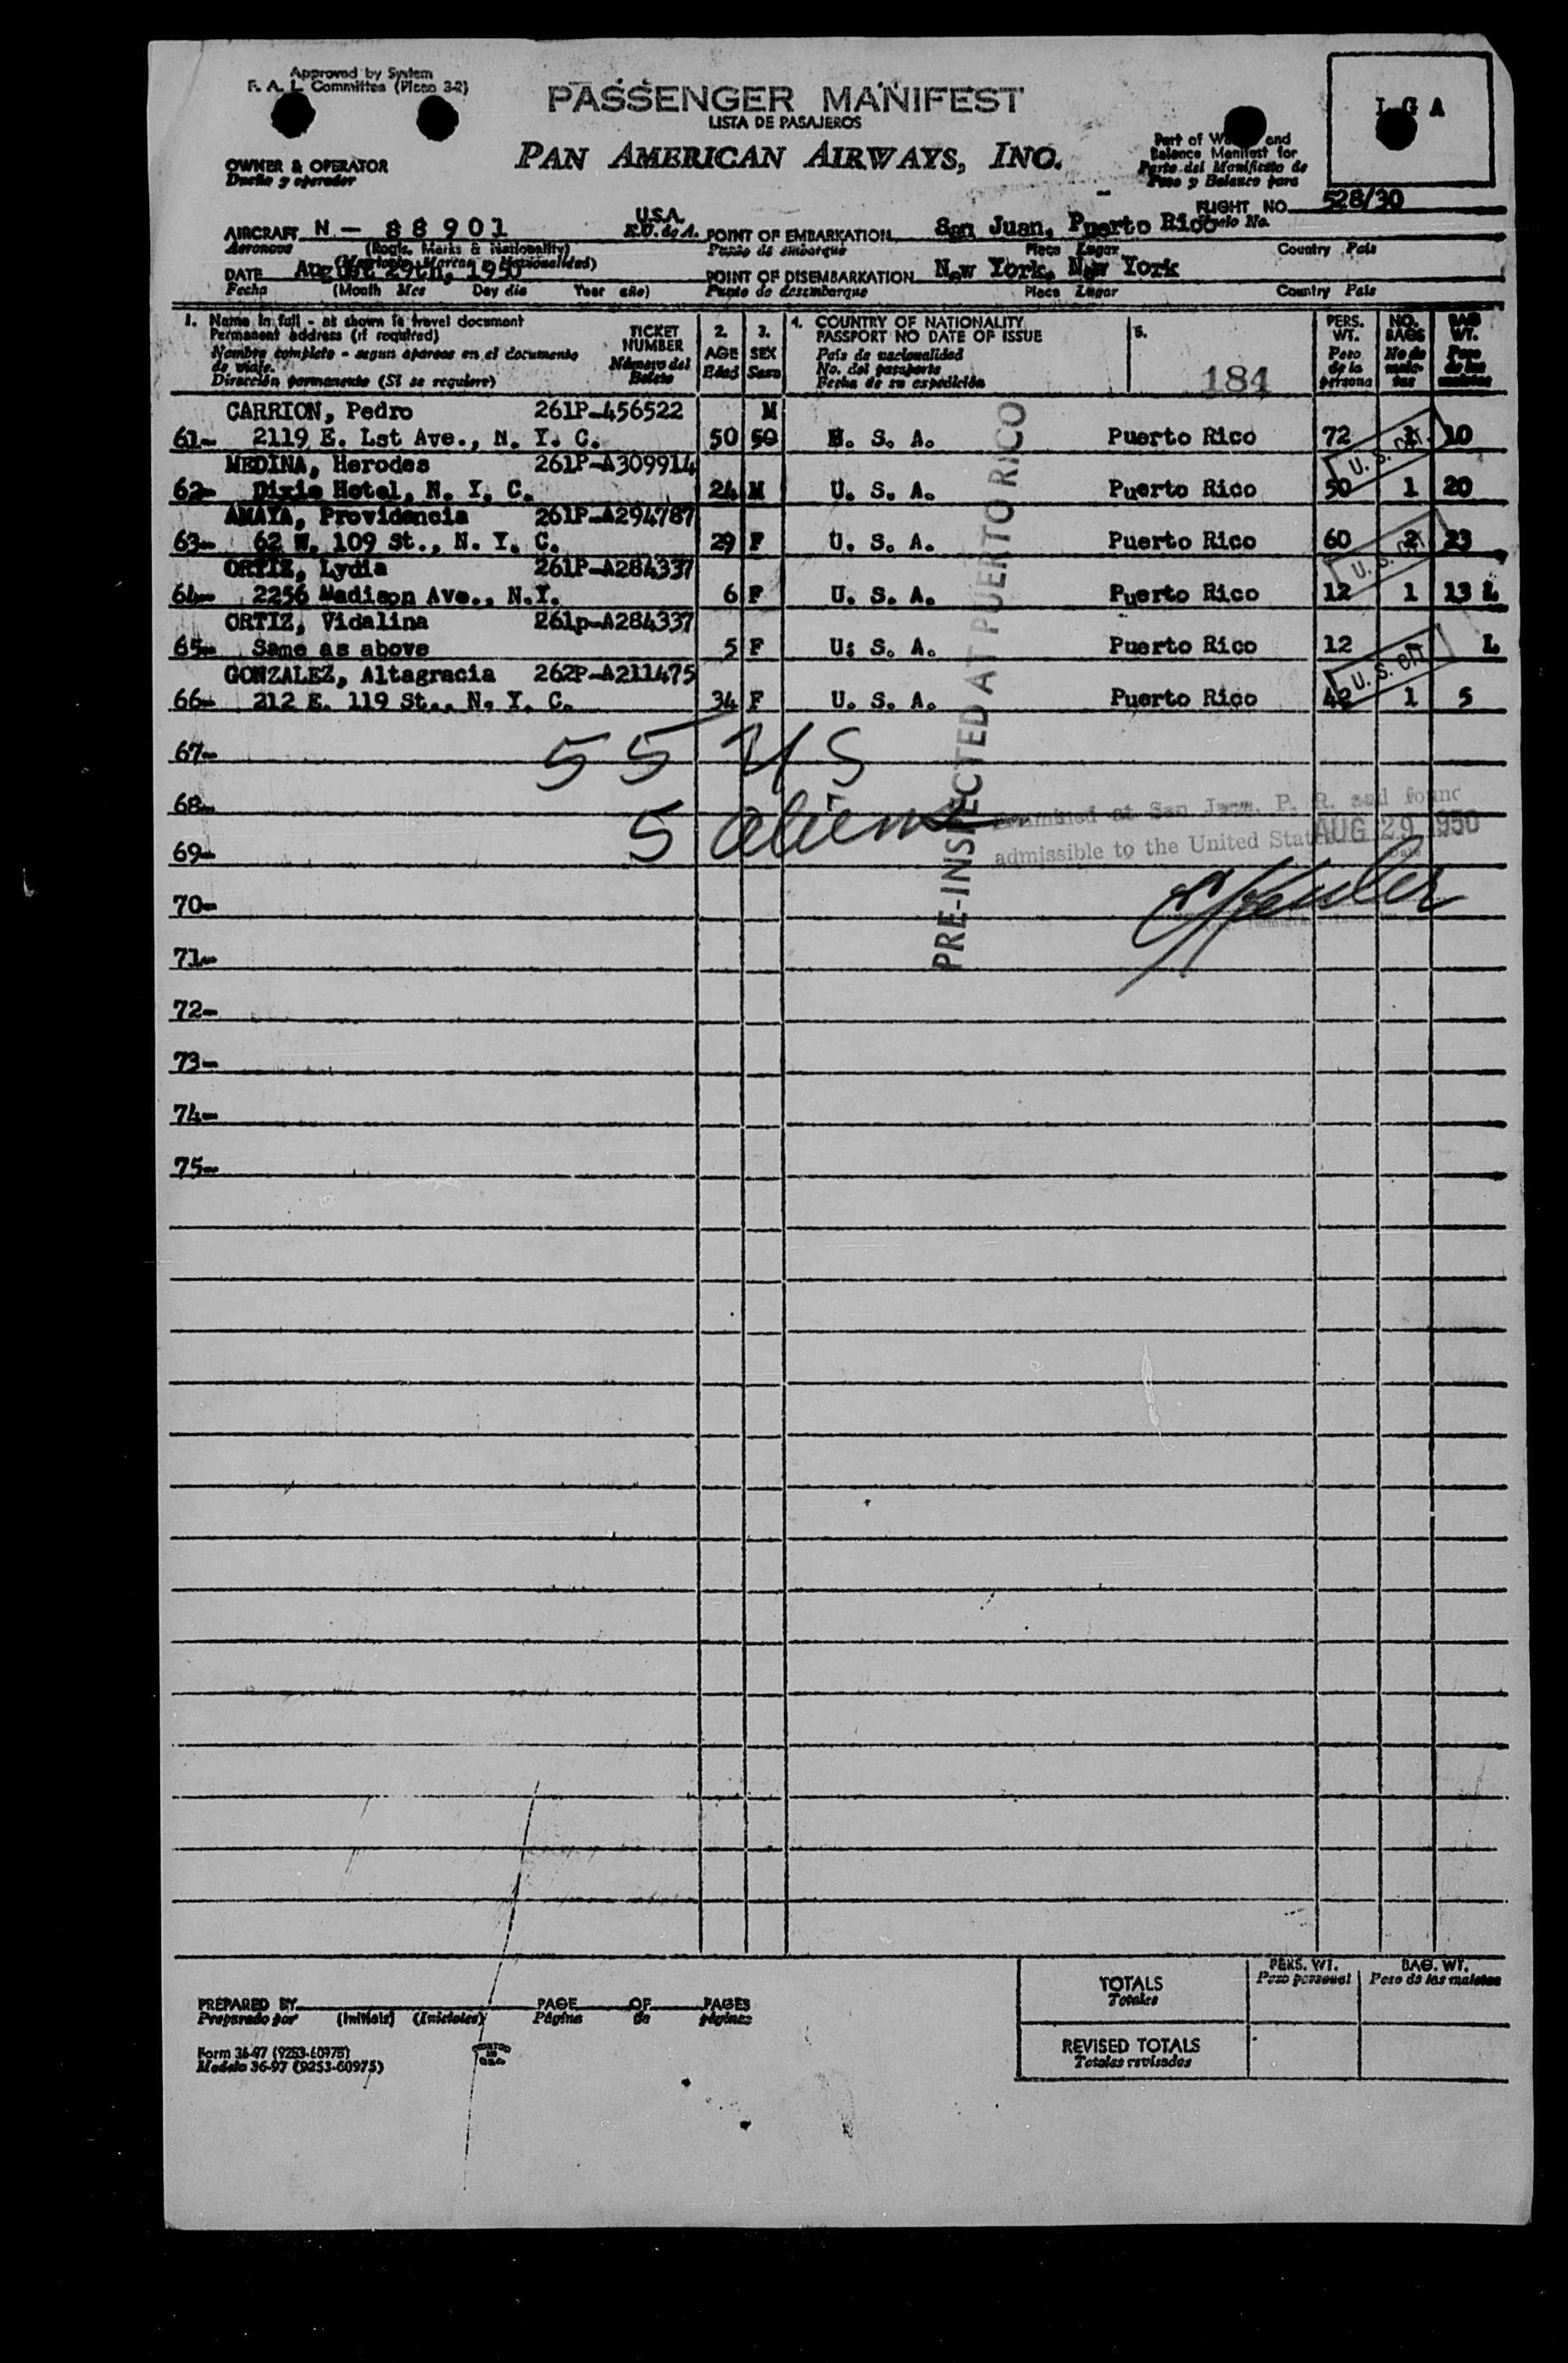 Approved by System
F. A. L. Committee (Mexco 3-2)
PASSENGER MANIFEST
LISTA DE PASAJEROS
PAN AMERICAN AIRWAYS, INC.
L G A
Part of W and
Balance Manifest for
Parte del Manifiesto de
Peso y Balance para
OWNER & OPERATOR
Dueño y operador
FLIGHT NO. 528/30
Vuelo No.
AIRCRAFT N - 88901 U.S.A. POINT OF EMBARKATION San Juan, Puerto Rico
Aeronave (Regis. Marks & Nationality) E.U. de A. Punto de embarque Place Lugar Country País
(Matrícula, Marcas y Nacionalidad)
DATE August 29th, 1950 POINT OF DISEMBARKATION New York, New York
Fecha (Month Mes Day día Year año) Punto de desembarque Place Lugar Country País
1. Name in full - as shown in travel document
Permanent address (if required)
Nombre completo - según aparece en el documento
de viaje.
Dirección permanente (Si se requiere)
TICKET
NUMBER
Número del
Boleto
2.
AGE
Edad
3.
SEX
Sexo
4. COUNTRY OF NATIONALITY
PASSPORT NO DATE OF ISSUE
País de nacionalidad
No. del pasaporte
Fecha de su expedición
5.
184
PERS.
WT.
Peso
de la
persona
NO.
BAGS
No de
male-
tas
BAG
WT.
Peso
de las
maletas
CARRION, Pedro 261P-456522 M
61- 2119 E. Lst Ave., N. Y. C. 50 50 U. S. A. Puerto Rico 72 1 10
MEDINA, Herodes 261P-A309914
62- Dixie Hotel, N. Y. C. 24 M U. S. A. Puerto Rico 50 1 20
AMAYA, Providencia 261P-A294787
63- 62 W. 109 St., N. Y. C. 29 F U. S. A. Puerto Rico 60 2 23
ORTIZ, Lydia 261P-A284337
64- 2256 Madison Ave., N.Y. 6 F U. S. A. Puerto Rico 12 1 13 L
ORTIZ, Vidalina 261p-A284337
65- Same as above 5 F U: S. A. Puerto Rico 12 L
GONZALEZ, Altagracia 262P-A211475
66- 212 E. 119 St., N. Y. C. 34 F U. S. A. Puerto Rico 42 1 5
U. S. CIT
U. S. CIT
U. S. CIT
PRE-INSPECTED AT PUERTO RICO
67-
55 US
68-
5 aliens
Examined at San Juan, P. R. and found
admissible to the United States
AUG 29 1950
Date
69-
70-
71-
72-
73-
74-
75-
TOTALS
Totales
PERS. WT.
Peso personal
BAG. WT.
Peso de las maletas
REVISED TOTALS
Totales revisados
PREPARED BY PAGE OF PAGES
Preparado por (Initials) (Iniciales) Página de páginas
Form 36-97 (9253-60975)
Modelo 36-97 (9253-60975)